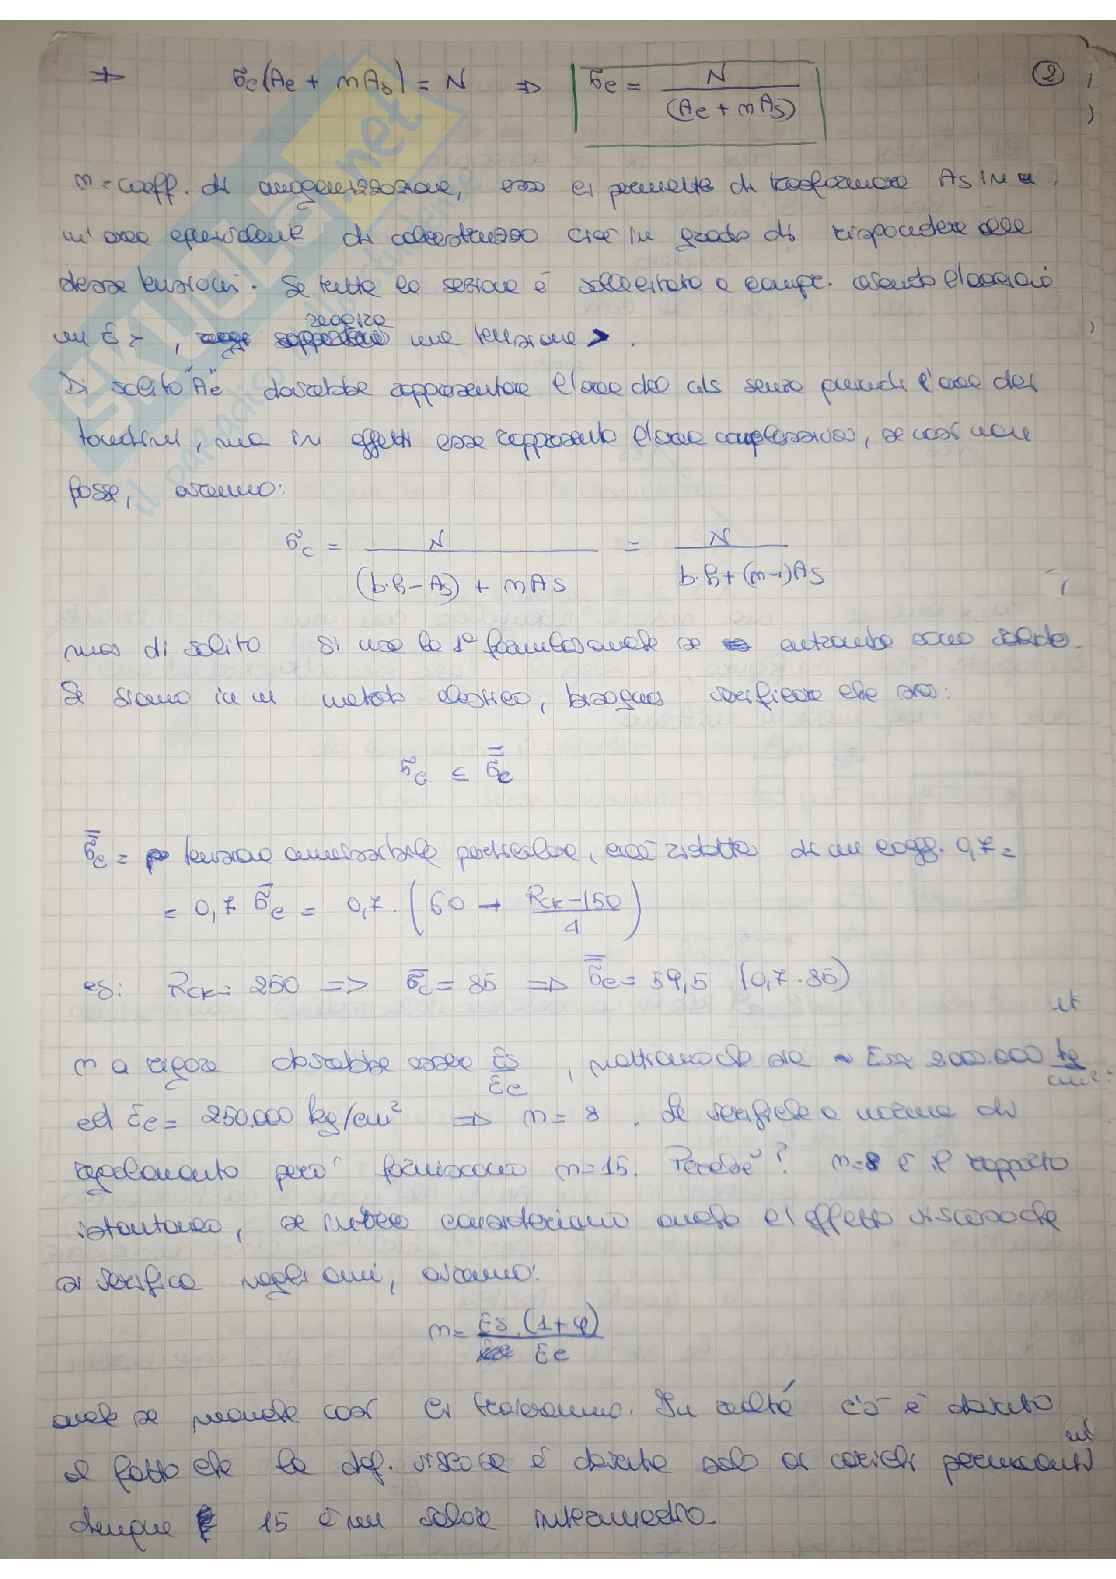 ⇒ σc(Ac + mAs) = N ⇒ σc = N / (Ac + mAs) 2
m = coeff. di omogeneizzazione, esso ci permette di trasformare As in
un'area equivalente di calcestruzzo cioè in grado di rispondere alle
stesse tensioni. Se tutta la sezione è sollecitata a compr. avendo l'acciaio
reagirà
un E >, una tensione > .
Di solito "Ac" dovrebbe rappresentare l'area del cls senza quindi l'area dei
tondini, ma in effetti essa rappresenta l'area complessiva, se così non
fosse, avremmo:
σc = N / ((b·h − As) + mAs) = N / (b·h + (m−1)As)
ma di solito si usa la 1° formula anche se entrambe sono valide.
Se siamo in un metodo elastico, bisogna verificare che sia:
σc ≤ σ̿c
σ̿c = tensione ammissibile particolare, cioè ridotta di un coeff. 0,7 =
= 0,7 σ̄c = 0,7 · (60 + (Rck − 150) / 4)
es: Rck = 250 => σ̄c = 85 => σ̿c = 59,5 (0,7 · 85)
m a rigore dovrebbe essere Es / Ec , mettiamo che sia Es = 2000.000 kg / cm²
ed Ec = 250.000 kg/cm² => m = 8 . Le verifiche a norma di
regolamento però forniscono m=15. Perché? m=8 è il rapporto
istantaneo, se invece consideriamo anche l'effetto viscoso che
si verifica negli anni, avremo:
m = Es (1+φ) / Ec
anche se neanche così ci troveremmo. In realtà ciò è dovuto
al fatto che la def. viscosa è dovuta solo ai carichi permanenti
dunque 15 è un valore intermedio.
SKUOLA.net